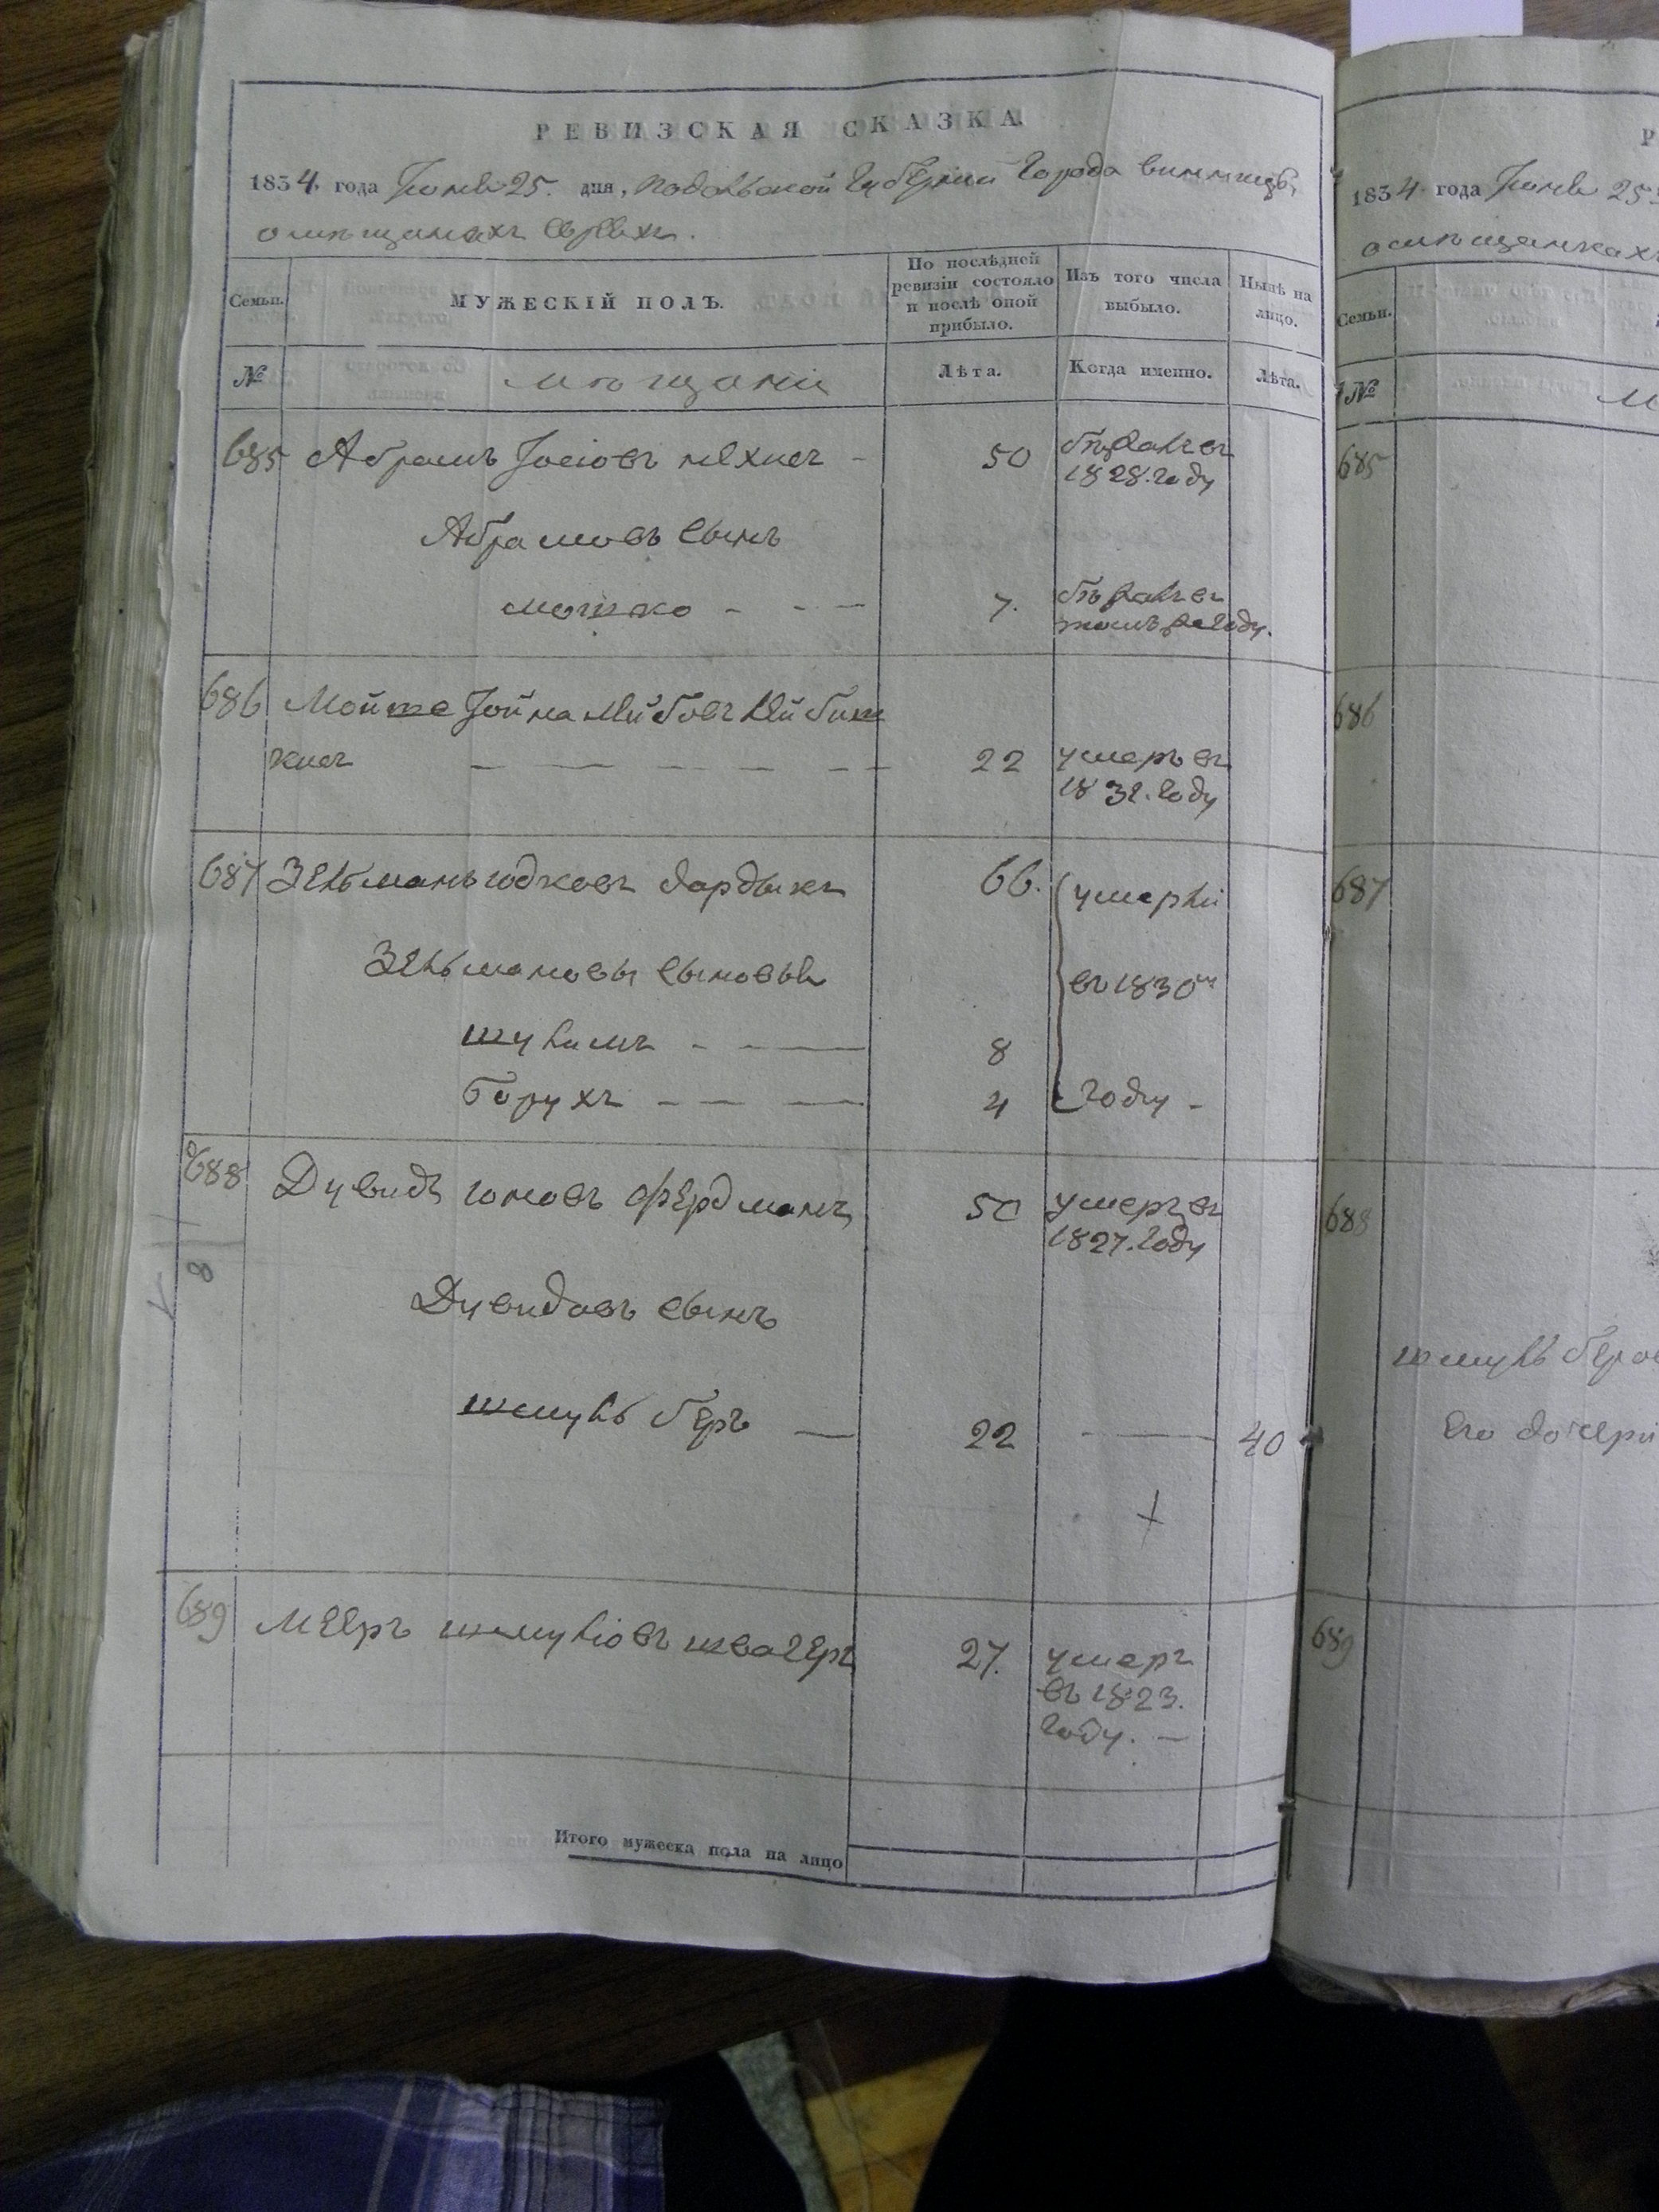 РЕВИЗСКАЯ СКАЗКА
1834 года Іюня 25. дня, Подольской Губерніи Города Винницы,
о мѣщанахъ Евреяхъ.
Семьи.
МУЖЕСКІЙ ПОЛЪ.
По послѣдней ревизіи состояло и послѣ оной прибыло.
Изъ того числа выбыло.
Нынѣ на лицо.
№
мѣщане
Лѣта.
Когда именно.
Лѣта.
685 Абрамъ Іосіовъ 50 бѣжалъ въ
1828. году
Абрамовъ сынъ
Мошко - - - 7. бѣжалъ въ
томъ же году.
686 Мойше Іойна Лейбовъ
22 умеръ въ
183 . году
687 Зельманъ Юдковъ Дардыкъ 66. умерли
Зельмановы сыновья
въ 1830мъ
Шулимъ - - - 8
Борухъ - - - 4 году -
688 Дувидъ Юновъ Фердманъ 50 умеръ въ
1827. году
8
Дувидовъ сынъ
Шмуль Беръ — 22 — 40
689 Мееръ Шмуліовъ Швагеръ 27. умеръ
въ 1823.
году. —
Итого мужеска пола на лицо
1834 года Іюня 25
о мѣщанкахъ
Семьи.
№
685
686
687
688
Шмуль Беро
Его дочери
689